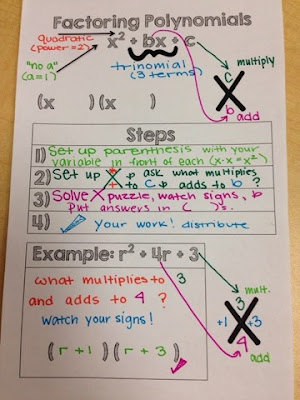 Factoring Polynomials
quadratic
(power=2)
x² + bx + c
"no a"
(a=1)
trinomial
(3 terms)
multiply
c
b
add
(x      )(x      )
Steps
1) Set up parenthesis with your
variable in front of each (x·x=x²)
2) Set up X & ask what multiplies
to c & adds to b ?
3) Solve X puzzle, watch signs, &
Put answers in (   )'s.
4) Your work! distribute
Example: r² + 4r + 3
what multiplies to 3
and adds to 4 ?
watch your signs!
(r + 1)(r + 3)
mult.
3
+1 +3
4
add